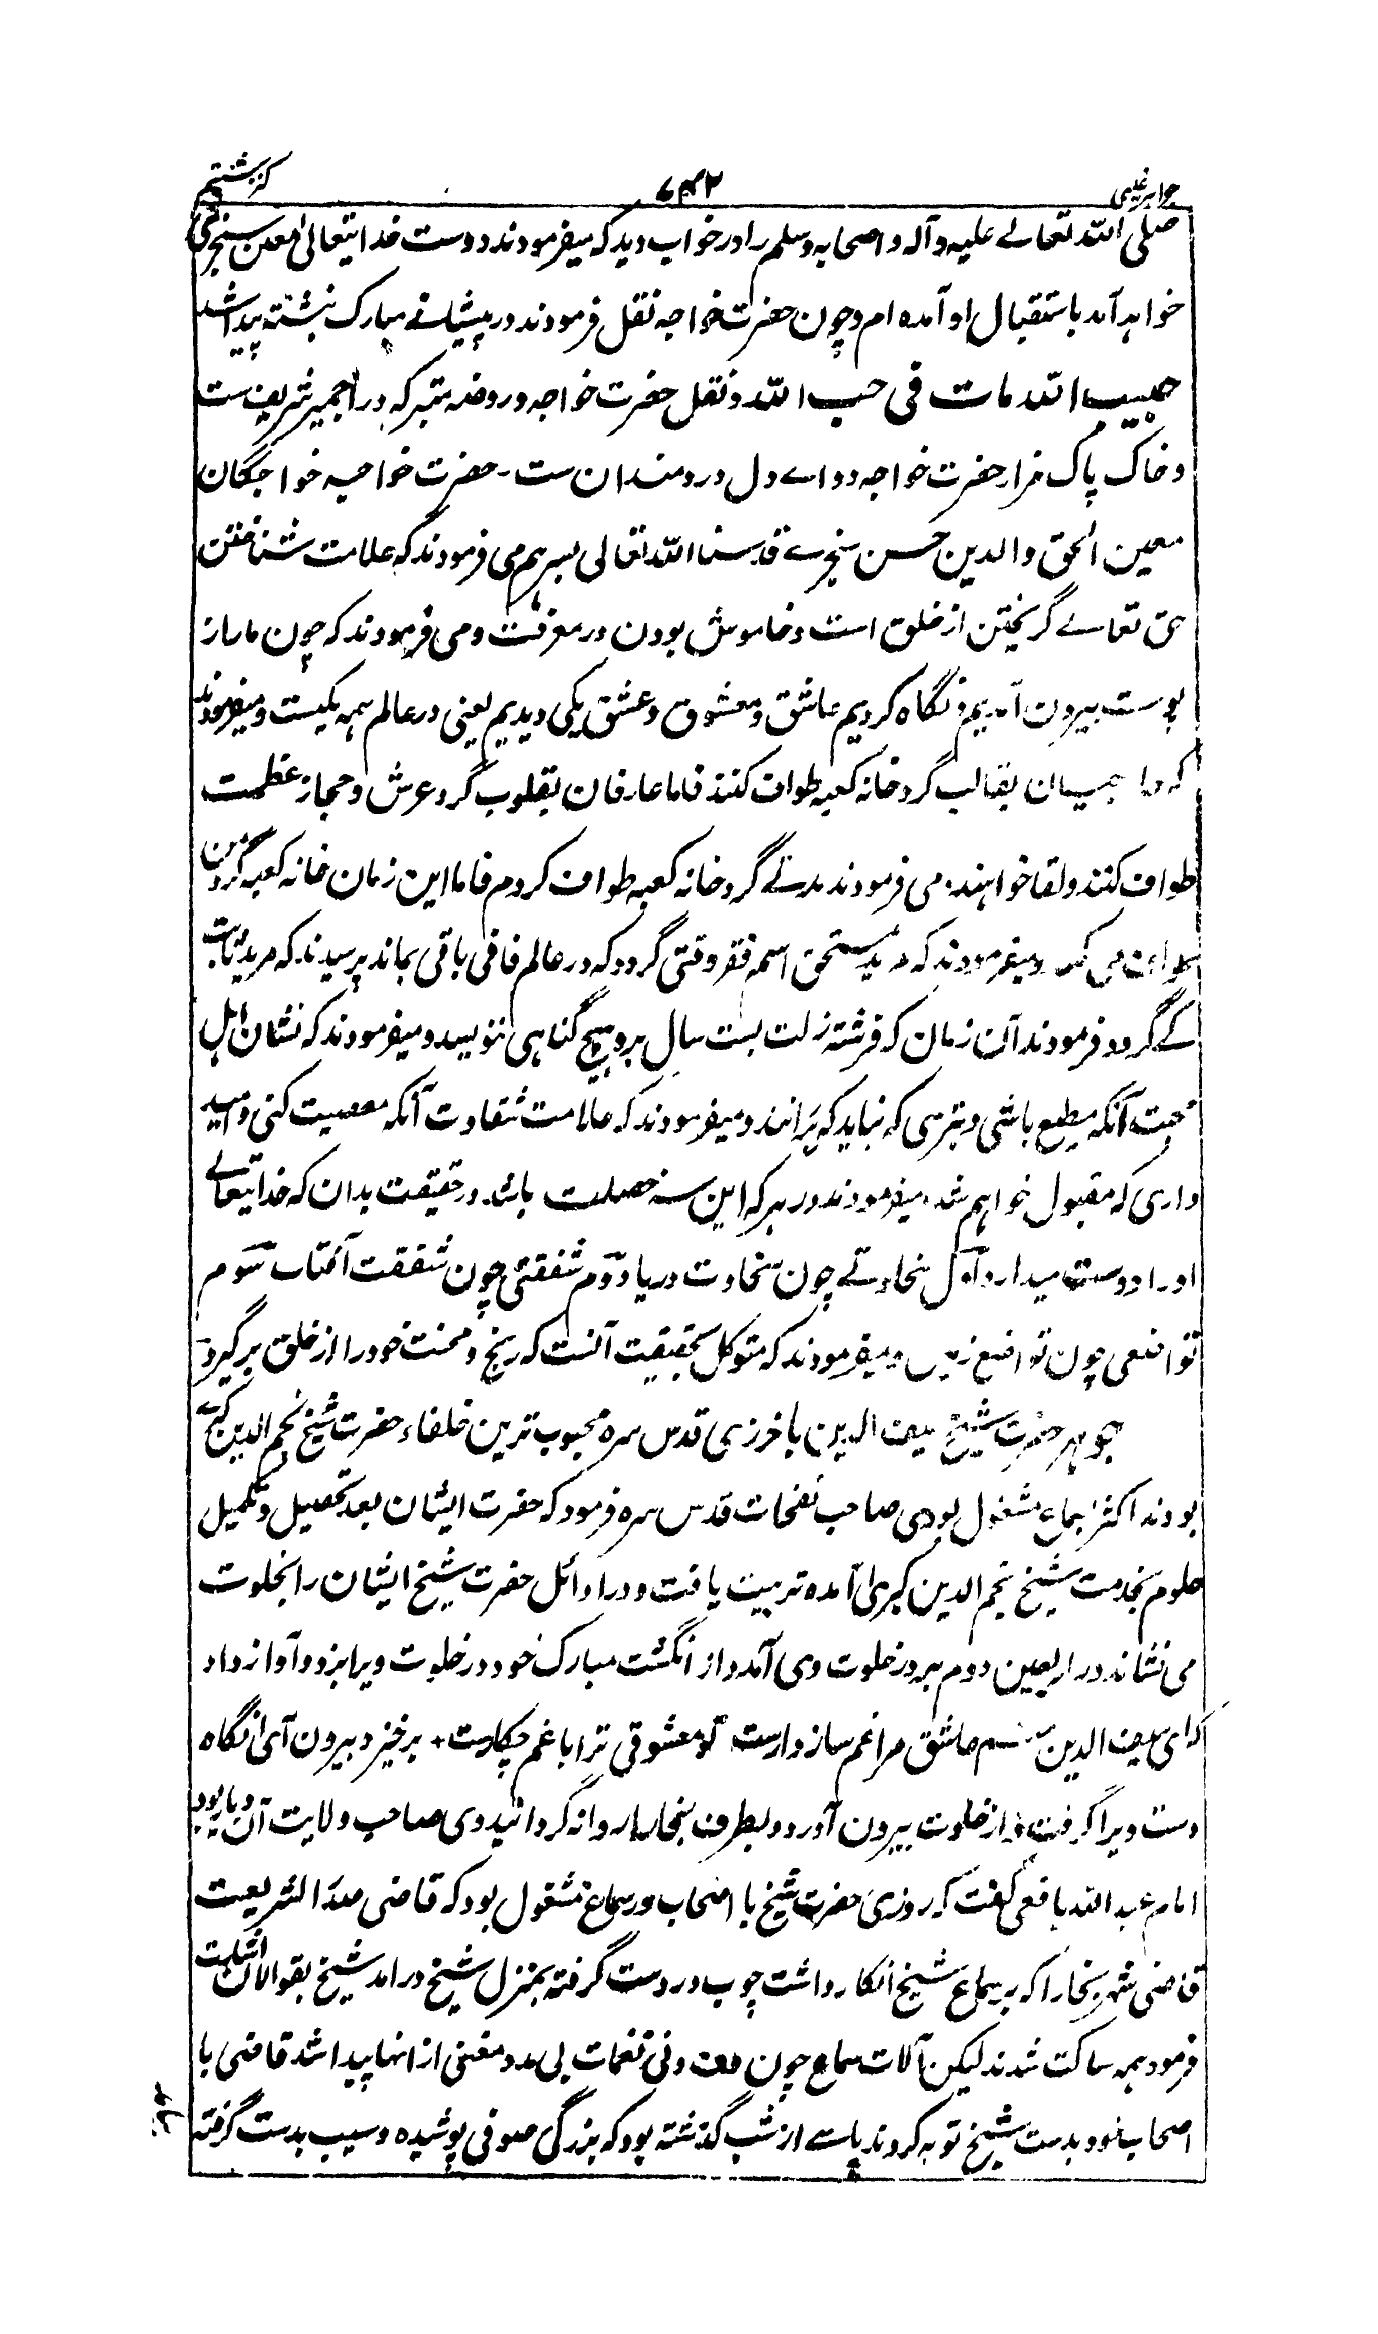 جواہر غیبی ۷۳۲ کنز ہشتم
صلی اللہ تعالے علیہ وآلہ واصحابہ وسلم را در خواب دید کہ میفرمودند دوست خدا یتعالی معین سنجری
خواہد آمد باستقبال او آمدہ ام وچون حضرت خواجہ نقل فرمودند در پیشانے مبارک نبشتہ پیدا شد
حبیب اللہ مات فی حب اللہ ونقل حضرت خواجہ و روضہ متبرکہ در اجمیر شریف ست
وخاک پاک مزار حضرت خواجہ دواے دل دردمندان ست۔ حضرت خواجہ خواجگان
معین الحق والدین حسن سنجرے قدسنا اللہ تعالی بسرہم می فرمودند کہ علامت شناختن
حق تعالے گریختن از خلق است وخاموش بودن در معرفت ومی فرمودند کہ چون ما از
پوست بیرون آمدیم ونگاہ کردیم عاشق ومعشوق وعشق یکی دیدیم یعنی در عالم ہمہ یکیست ومیفرمودند
کہ حاجیان بقالب گرد خانہ کعبہ طواف کنند فاما عارفان بقلوب گرد عرش وحجاز عظمت
طواف کنند ولقا خواہند۔ می فرمودند مدتے گرد خانہ کعبہ طواف کردم فاما این زمان خانہ کعبہ گرد من
طواف می کند ومیفرمودند کہ مرید مستحق اسمہ فقر وقتی گردد کہ در عالم فانی باقی بماند پرسیدند کہ مرید ثابت
کے گردد فرمودند آن زمان کہ فرشتہ زلت بست سال برو ہیچ گناہی ننویسد ومیفرمودند کہ نشان اہل
محبت آنکہ مطیع باشی وبترسی کہ نباید کہ برانند ومیفرمودند کہ علامت شقاوت آنکہ معصیت کنی وامید
داری کہ مقبول خواہم شد۔ میفرمودند در ہر کہ این سہ خصلت باشد در حقیقت بدان کہ خدا یتعالے
او را دوست میدارد اول سخاوتے چون سخاوت دریا دوم شفقتی چون شفقت آفتاب سوم
تواضعی چون تواضع زمین ومیفرمودند کہ متوکل بحقیقت آنست کہ رنج ومحنت خود را از خلق برگیرد
جوہر حضرت شیخ سیف الدین باخرزی قدس سرہ محبوب ترین خلفاء حضرت شیخ نجم الدین کبرے
بودند اکثر بسماع مشغول بودی صاحب نفحات قدس سرہ فرمود کہ حضرت ایشان بعد تحصیل وتکمیل
علوم بخدمت شیخ نجم الدین کبری آمدہ تربیت یافت ودر اوائل حضرت شیخ ایشان را بخلوت
می نشاند در اربعین دوم بر در خلوت وی آمد واز انگشت مبارک خود در خلوت ویرا بزد وآواز داد
کہ ای سیف الدین منم عاشق مرا غم سازوارست تو معشوقی ترا با غم چکارست٭ برخیز وبیرون آی آنگاہ
دست ویرا گرفت واز خلوت بیرون آورد وبطرف بخارا روانہ گردانید وی صاحب ولایت آن دیار بود
امام عبد اللہ یافعی گفت کہ روزی حضرت شیخ با اصحاب در سماع مشغول بود کہ قاضی صدر الشریعت
قاضی شہر بخارا کہ بر سماع شیخ انکار داشت چوب در دست گرفتہ بمنزل شیخ درامد شیخ بقوالان اشارت
فرمود ہمہ ساکت شدند لیکن آلات سماع چون دف ونی نغمات بی مدد مغنی ازانہا پیدا شد قاضی با
اصحاب خود بدست شیخ توبہ کردند پاسے از شب گذشتہ بود کہ بزرگی صوفی پوشیدہ وسیب بدست گرفتہ